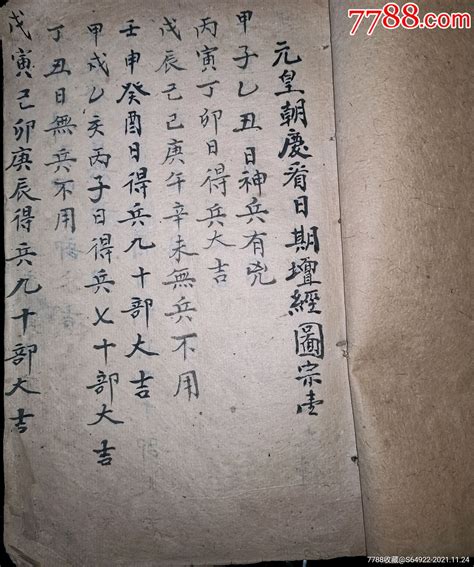 7788.com
元皇朝慶看日期壇經圖宗壹
甲子乙丑日神兵有兇
丙寅丁卯日得兵大吉
戊辰己巳庚午辛未無兵不用
壬申癸酉日得兵九十部大吉
甲戌乙亥丙子日得兵七十部大吉
丁丑日無兵不用
戊寅己卯庚辰得兵九十部大吉
7788收藏@S64922-2021.11.24